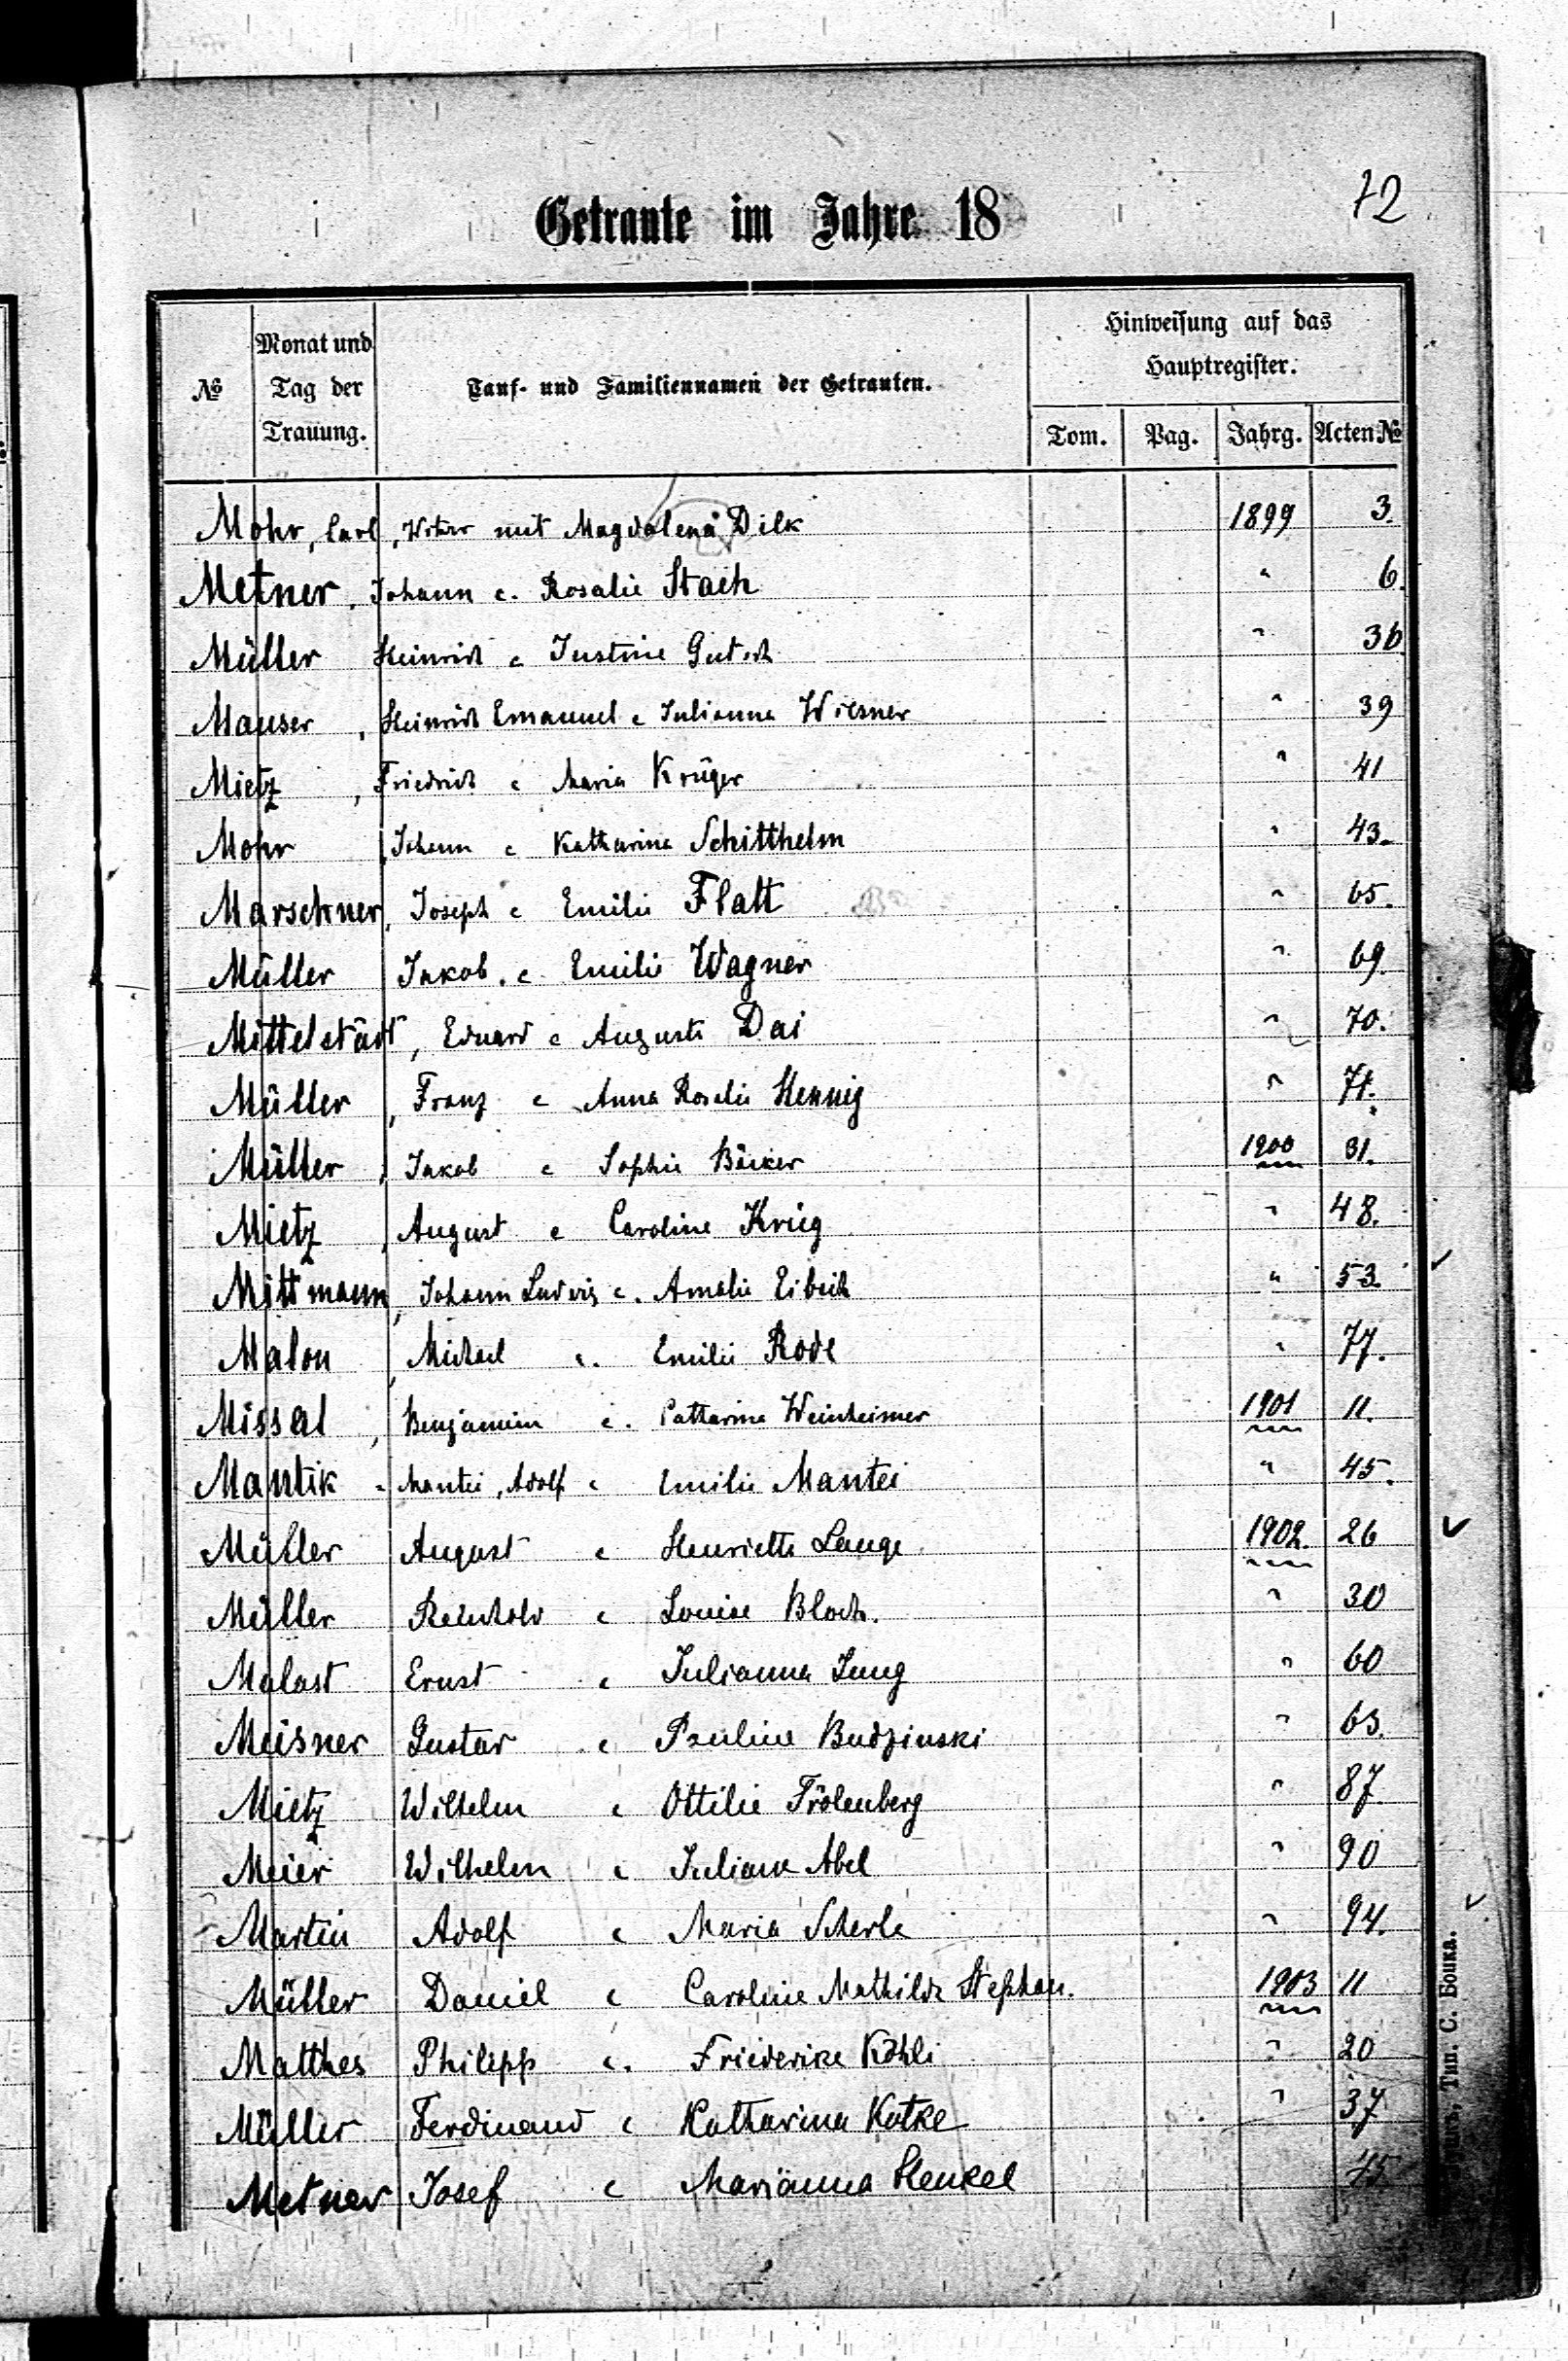 72
Getraute im Jahre 18
№ Monat und Tag der Trauung. Tauf- und Familiennamen der Getrauten. Hinweisung auf das Hauptregister.
Tom. Pag. Jahrg. Acten №
Mohr, Carl, Witwer mit Magdalena Dilk 1899 3.
Metner, Johann c. Rosalie Stach " 6.
Müller Heinrich c Justine Gutsch " 36.
Mauser, Heinrich Emanuel c Julianna Wiesner " 39
Mietz, Friedrich c Maria Krüger " 41
Mohr, Johann c Katharina Schitthelm " 43.
Marschner, Joseph c Emilie Flatt " 65.
Müller Jakob. c Emilie Wagner " 69.
Mittelstädt, Eduard c Auguste Dai " 70.
Müller, Franz c Anna Rosalie Hennig " 71.
Müller, Jakob c Sophie Bäcker 1900 31.
Mietz, August c Caroline Krieg " 48.
Mittmann, Johann Ludwig c. Amalie Eibich " 53.
Malon, Michael c. Emilie Rode " 77.
Missal, Benjamin c. Cattarina Weinheimer 1901 11.
Mantik - Mantei, Adolf c Emilie Mantei " 45.
Müller August c Henriette Lange 1902. 26
Müller Reinhold c Louise Bloch. " 30
Malast Ernst c Julianna Jung " 60
Meisner Gustav c Pauline Budzinski " 63.
Mietz Wilhelm c Ottilie Frölenberg " 87
Meier Wilhelm c Juliane Abel " 90
Martin Adolf c Maria Scherle " 94.
Müller Daniel c Caroline Mathilde Stephan. 1903 11
Matthes Philipp c. Friederike Köhli " 20
Müller Ferdinand c Katharina Kotke " 37
Metner Josef c Marianna Henkel 45.
Тип. С. Бонка.